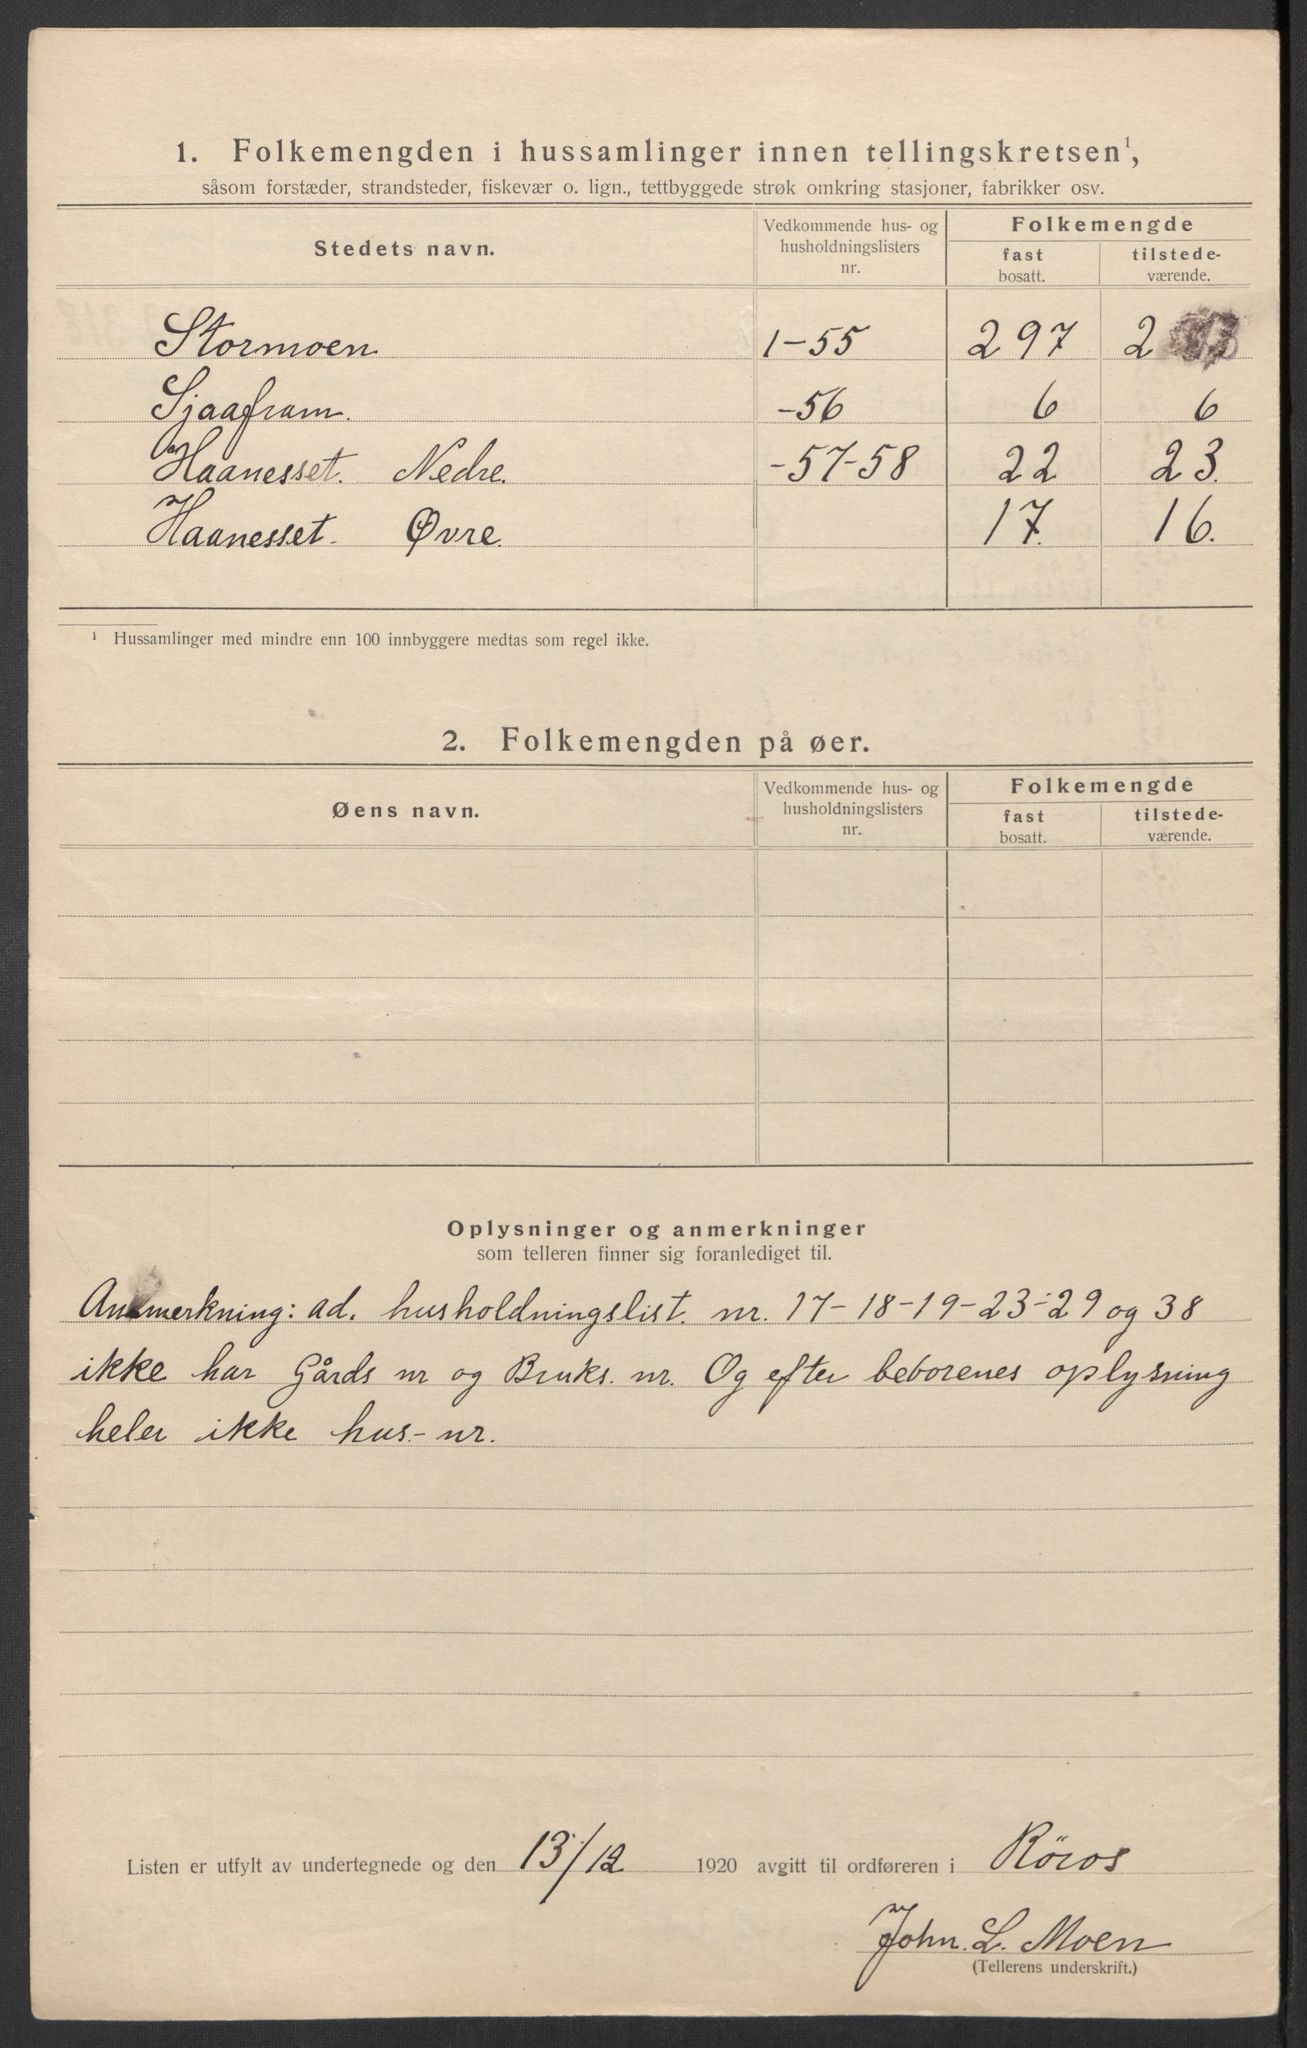 1. Folkemengden i hussamlinger innen tellingskretsen¹,
såsom forstæder, strandsteder, fiskevær o. lign., tettbyggede strøk omkring stasjoner, fabrikker osv.
Stedets navn. Vedkommende hus- og husholdningslisters nr. Folkemengde
fast bosatt. tilstede-værende.
Stormoen 1-55 297 2
Sjaafram. -56 6 6
Haanesset. Nedre. -57-58 22 23.
Haanesset. Øvre. 17. 16.
¹ Hussamlinger med mindre enn 100 innbyggere medtas som regel ikke.
2. Folkemengden på øer.
Øens navn. Vedkommende hus- og husholdningslisters nr. Folkemengde
fast bosatt. tilstede-værende.
Oplysninger og anmerkninger
som telleren finner sig foranlediget til.
Anmerkning: ad. husholdningslist. nr. 17-18-19-23-29 og 38
ikke har Gårds nr og Bruks. nr. Og efter beborenes oplysning
heler ikke hus-nr.
Listen er utfylt av undertegnede og den 13/12 1920 avgitt til ordføreren i Röros
John. L. Moen
(Tellerens underskrift.)